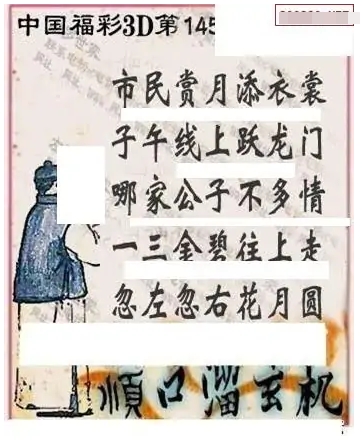 中国福彩3D第145
市民赏月添衣裳
子午线上跃龙门
哪家公子不多情
一三金碧往上走
忽左忽右花月圆
顺口溜玄机